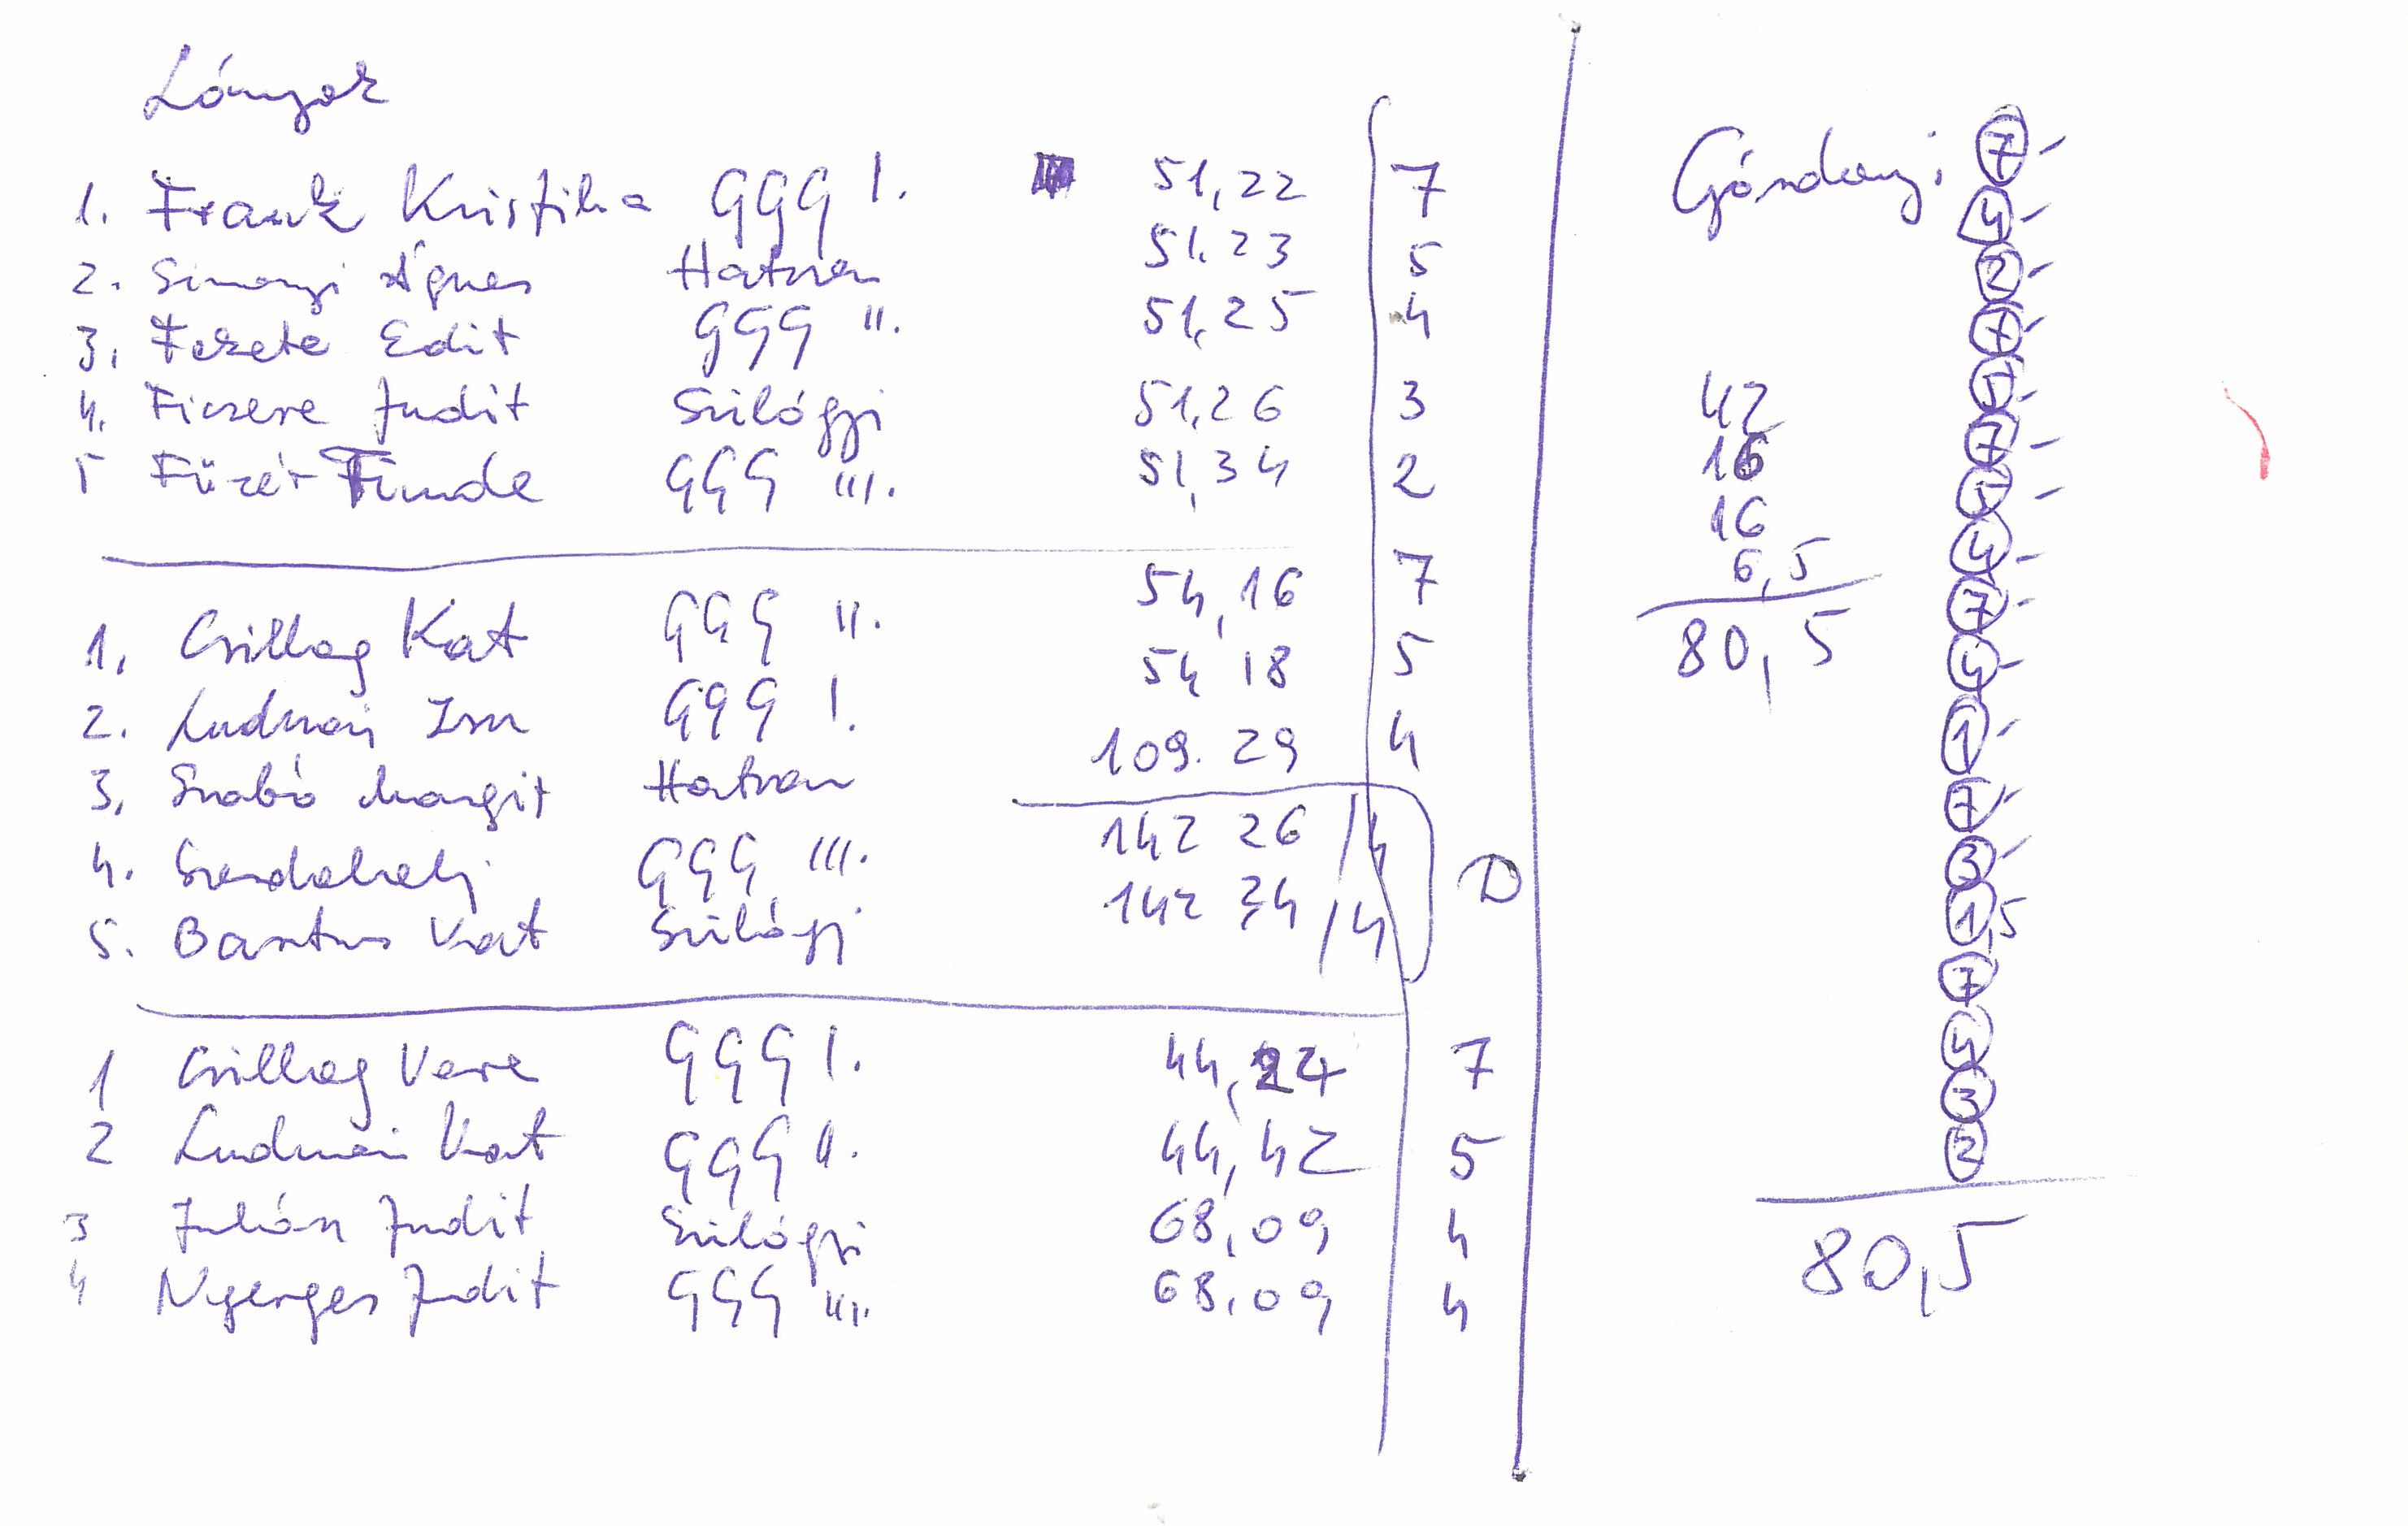 Lányok
1. Frank Krisztina GGG I. 51,22 7
2. Simonyi Ágnes Hatvan 51,23 5
3, Fekete Edit GGG II. 51,25 4
4. Ficzere Judit Szilágyi 51,26 3
5 Füzér Tünde GGG III. 51,34 2
1, Csillag Kat GGG II. 54,16 7
2. Ludmán Zsu GGG I. 54 18 5
3, Szabó Margit Hatvan 109. 29 4
4. GGG III. 142 26 /4
5. Kat Szilágyi 142 34 /4
D
1 Csillag Vera GGG I. 44,24 7
2 Ludmán Kat GGG II. 44,42 5
3 Julián Judit Szilágyi 68,09 4
4 Nyerges Judit GGG III. 68,09 4
Gárdonyi
42
16
16
6,5
80,5
7 -
4 -
2 -
7 -
5 -
7 -
5 -
4 -
7 -
4 -
1 -
7 -
3 -
1,5
7
4
3
2
80,5